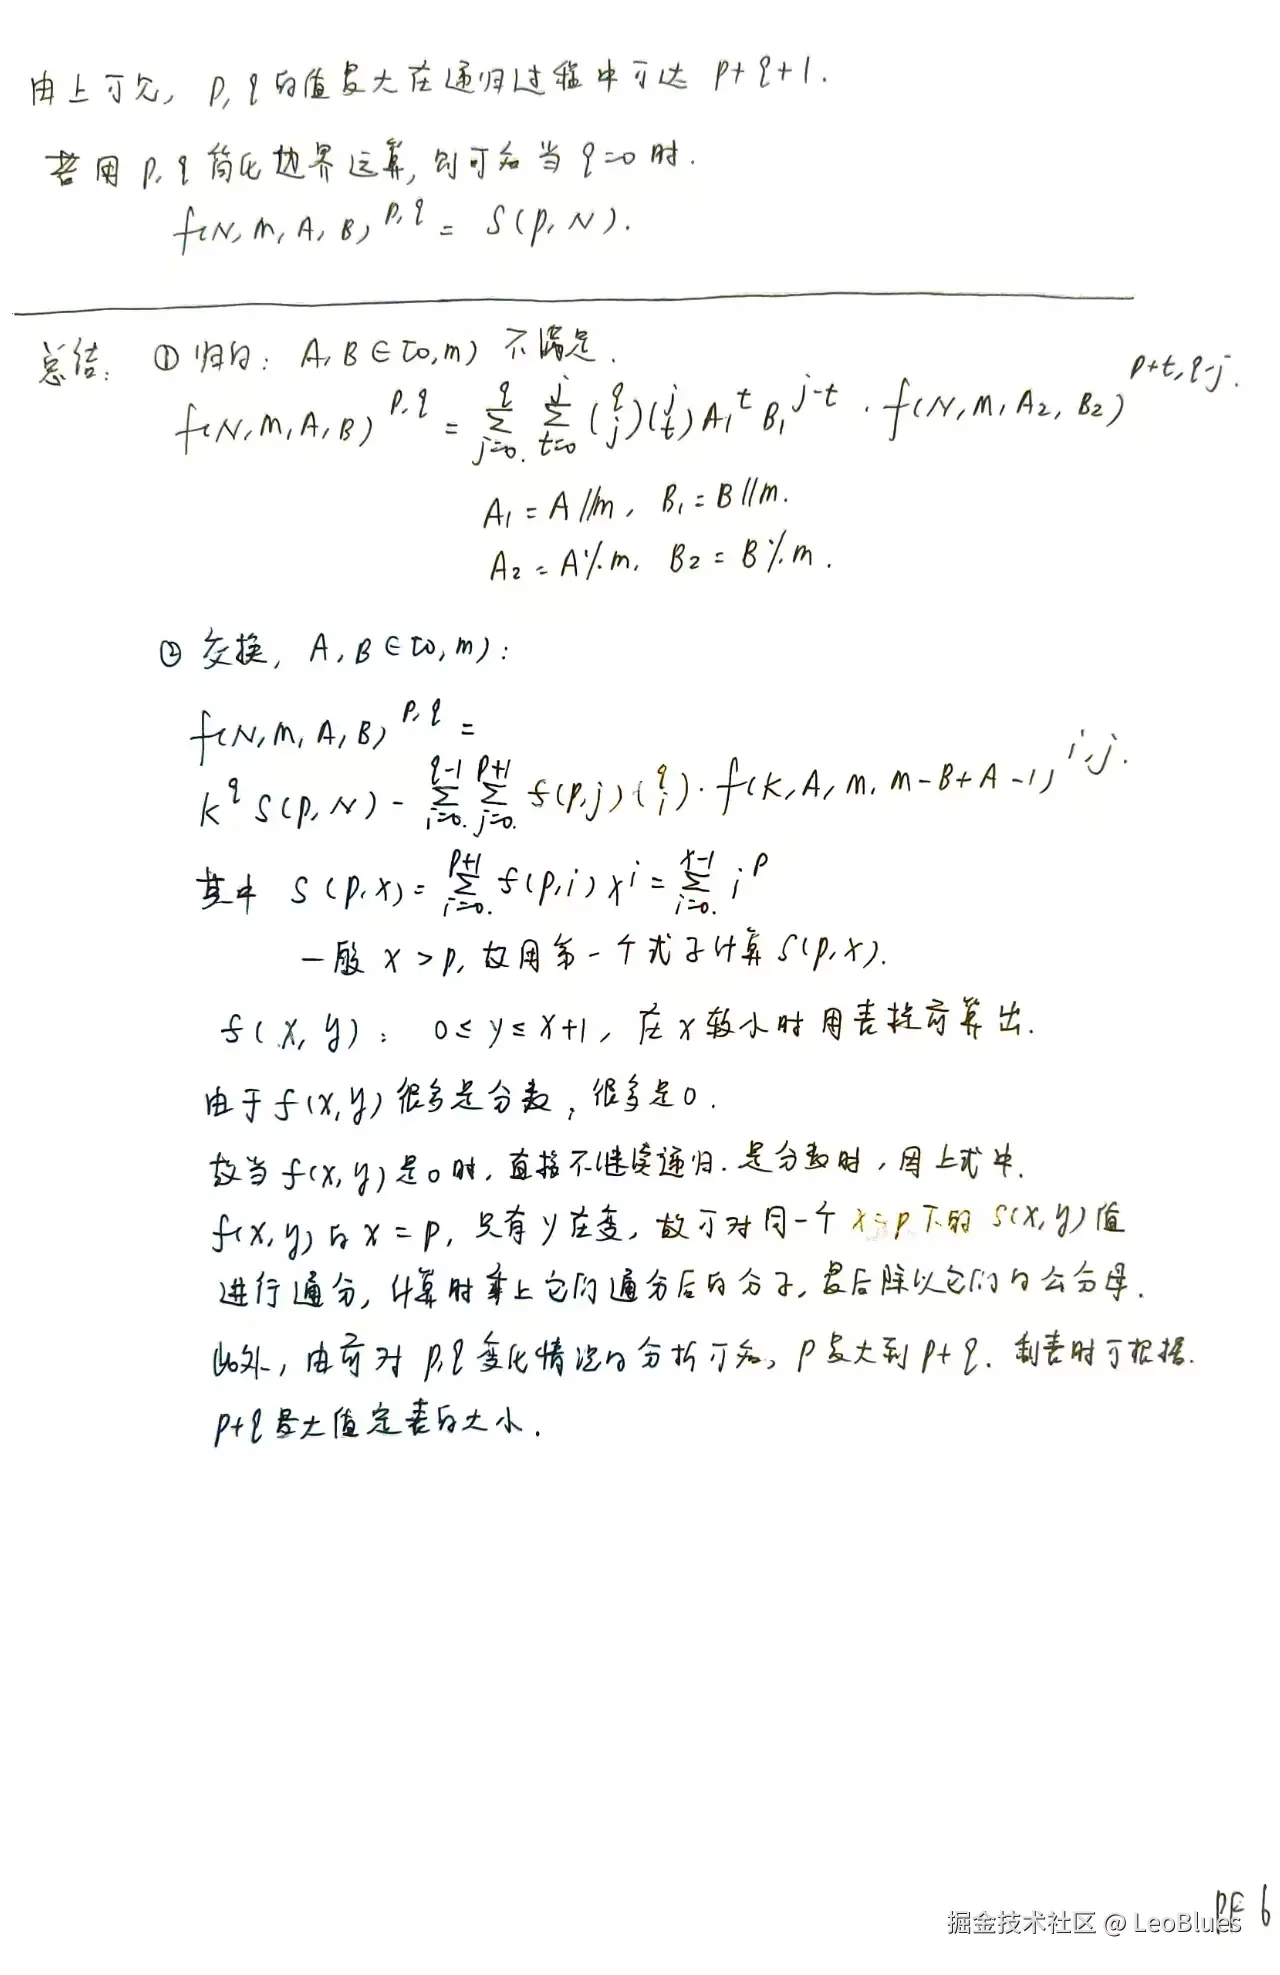 由上可知, p, q的值最大在递归过程中可达 p+q+1.
若用 p, q 简化边界运算, 则可知当 q=0 时.
f(N, M, A, B)^{p,q} = S(p, N).
总结: ① 归约: A, B ∈ [0, m) 不满足.
f(N, M, A, B)^{p,q} = \sum_{j=0}^{q} \sum_{t=0}^{j} \binom{q}{j} \binom{j}{t} A_1^t B_1^{j-t} · f(N, M, A_2, B_2)^{p+t, q-j}.
A_1 = A // m, B_1 = B // m.
A_2 = A % m, B_2 = B % m.
② 交换, A, B ∈ [0, m):
f(N, M, A, B)^{p,q} =
K^q S(p, N) - \sum_{i=0}^{q-1} \sum_{j=0}^{p+1} f(p, j) \binom{q}{i} · f(K, A, m, m-B+A-1)^{i,j}.
其中 S(p, x) = \sum_{i=0}^{p+1} f(p, i) x^i = \sum_{i=0}^{x-1} i^p
一般 x > p, 故用第一个式子计算 S(p, x).
f(x, y): 0 ≤ y ≤ x+1, 在 x 较小时用表提前算出.
由于 f(x, y) 很多是分数, 很多是0.
故当 f(x, y) 是0时, 直接不继续递归. 是分数时, 因上式中.
f(x, y) 的 x = p, 只有 y 在变, 故可对同一个 x=p 下的 S(x, y) 值
进行通分, 计算时乘上它们通分后的分子, 最后除以它们的公分母.
此外, 由前对 p, q 变化情况的分析可知, p 最大到 p+q. 制表时可根据.
p+q 最大值定表的大小.
PE 6
掘金技术社区 @ LeoBlues